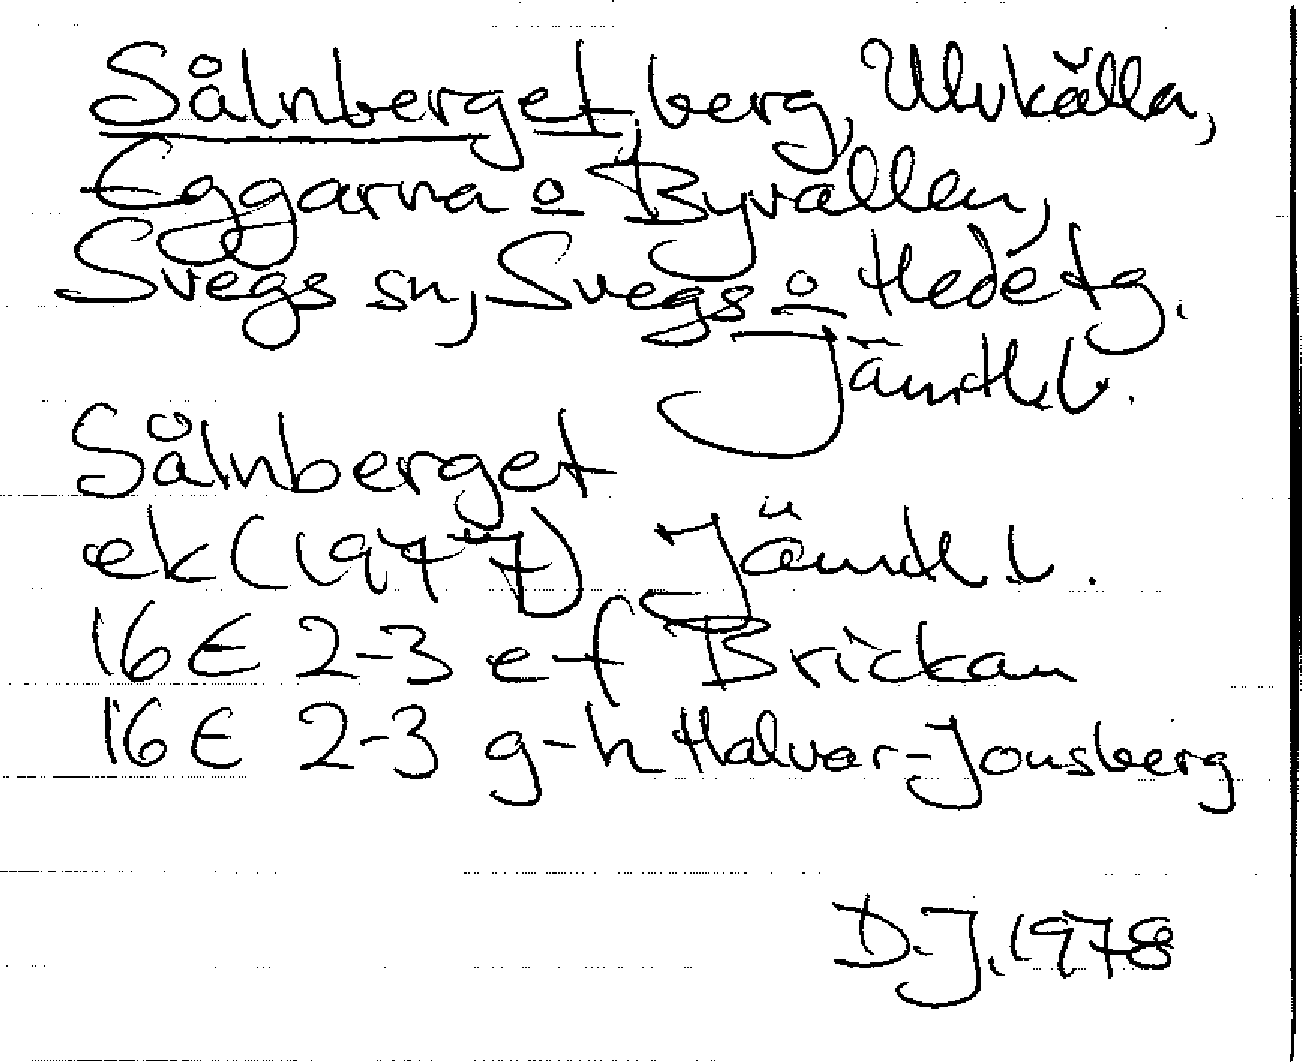 Sålnberget, berg, Ulvkälla,
Eggarna o Byvallen,
Svegs sn, Svegs o Hede tg.
Jämtl.l.
Sålnberget
ek (1977) Jämtl l.
16E 2-3 e-f Brickan
16E 2-3 g-h Halvar-Jonsberg
D.J. 1978